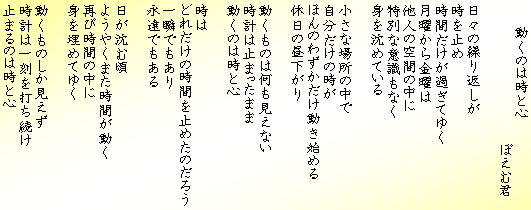 動くのは時と心
ぽえむ君
日々の繰り返しが
時を止め
時間だけが過ぎてゆく
月曜から金曜は
他人の空間の中に
特別な意識もなく
身を沈めている
小さな場所の中で
自分だけの時が
ほんのわずかだけ動き始める
休日の昼下がり
動くものは何も見えない
時計は止まったまま
動くのは時と心
時は
どれだけの時間を止めたのだろう
一瞬でもあり
永遠でもある
日が沈む頃
ようやくまた時間が動く
再び時間の中に
身を埋めてゆく
動くものしか見えず
時計は一刻を打ち続け
止まるのは時と心